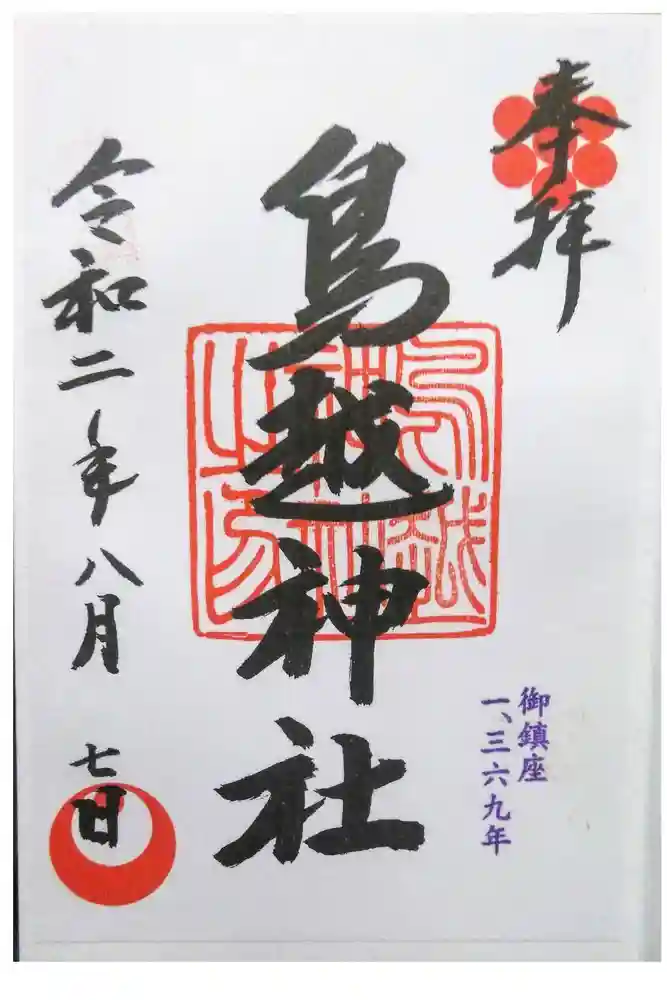 奉拝
御鎮座
一、三六九年
鳥越神社
令和二年八月七日